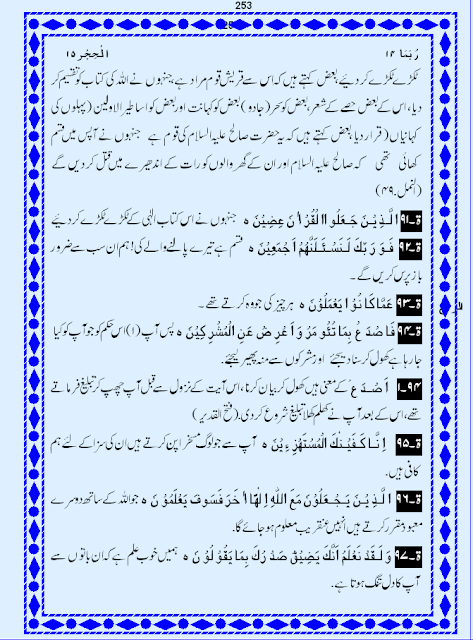 253
رُبَمَا ۱۴ الْحِجْر ۱۵
ٹکڑے ٹکڑے کر دیئے بعض کہتے ہیں کہ اس سے قریش قوم مراد ہے، جنہوں نے اللہ کی کتاب کو تقسیم کر
دیا، اس کے بعض حصے کے شعر، بعض کو سحر (جادو) بعض کو کہانت اور بعض کو اساطیر الاولین (پہلوں کی
کہانیاں) قرار دیا، بعض کہتے ہیں کہ یہ حضرت صالح علیہ السلام کی قوم ہے جنہوں نے آپس میں قسم
کھائی تھی کہ صالح علیہ السلام اور ان کے گھر والوں کو رات کے اندھیرے میں قتل کر دیں گے
(النمل۔۴۹)
ۃ۔۹۱ الَّذِيْنَ جَعَلُوا الْقُرْاٰنَ عِضِيْنَ ہ جنہوں نے اس کتاب الٰہی کے ٹکڑے ٹکڑے کر دیئے
ۃ۔۹۲ فَوَرَبِّكَ لَنَسْئَلَنَّهُمْ اَجْمَعِيْنَ ہ قسم ہے تیرے پالنے والے کی! ہم ان سب سے ضرور
باز پرس کریں گے۔
ۃ۔۹۳ عَمَّا كَانُوْا يَعْمَلُوْنَ ہ ہر چیز کی جو وہ کرتے تھے۔
ۃ۔۹۴ فَاصْدَعْ بِمَا تُؤْمَرُ وَاَعْرِضْ عَنِ الْمُشْرِكِيْنَ ہ پس آپ (۱) اس حکم کو جو آپ کو کیا
جا رہا ہے کھول کر سنا دیجئے اور مشرکوں سے منہ پھیر لیجئے۔
۹۴۔۱ اَصْدَعْ کے معنی ہیں کھول کر بیان کرنا، اس آیت کے نزول سے قبل آپ چھپ کر تبلیغ فرماتے
تھے، اس کے بعد آپ نے کھلم کھلا تبلیغ شروع کر دی (فتح القدیر)
ۃ۔۹۵ اِنَّا كَفَيْنٰكَ الْمُسْتَهْزِءِيْنَ ہ آپ سے جو لوگ مسخرا پن کرتے ہیں ان کی سزا کے لئے ہم
کافی ہیں۔
ۃ۔۹۶ الَّذِيْنَ يَجْعَلُوْنَ مَعَ اللّٰهِ اِلٰهًا اٰخَرَ فَسَوْفَ يَعْلَمُوْنَ ہ جو اللہ کے ساتھ دوسرے
معبود مقرر کرتے ہیں انہیں عنقریب معلوم ہو جائے گا۔
ۃ۔۹۷ وَلَقَدْ نَعْلَمُ اَنَّكَ يَضِيْقُ صَدْرُكَ بِمَا يَقُوْلُوْنَ ہ ہمیں خوب علم ہے کہ ان باتوں سے
آپ کا دل تنگ ہوتا ہے۔